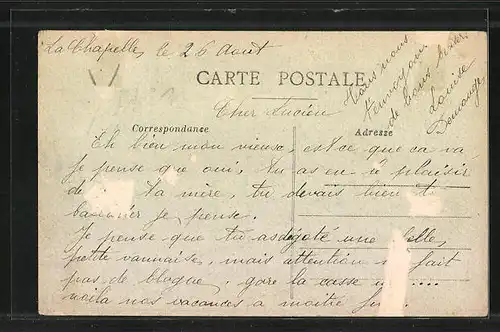 La Chapelle, le 26 Août
CARTE POSTALE
Cher Lucien
Correspondance
Adresse
Eh bien mon vieux, est ce que ca va
je pense que oui. Tu as eu le plaisir
de ta mère, tu devais bien te
je pense.
Je pense que tu as dégoté une belle
petite vannaise, mais attention ne fait
pas de blague, gare la casse ....
voila nos vacances a moitié
Nous nous
de bons baisers
Louise